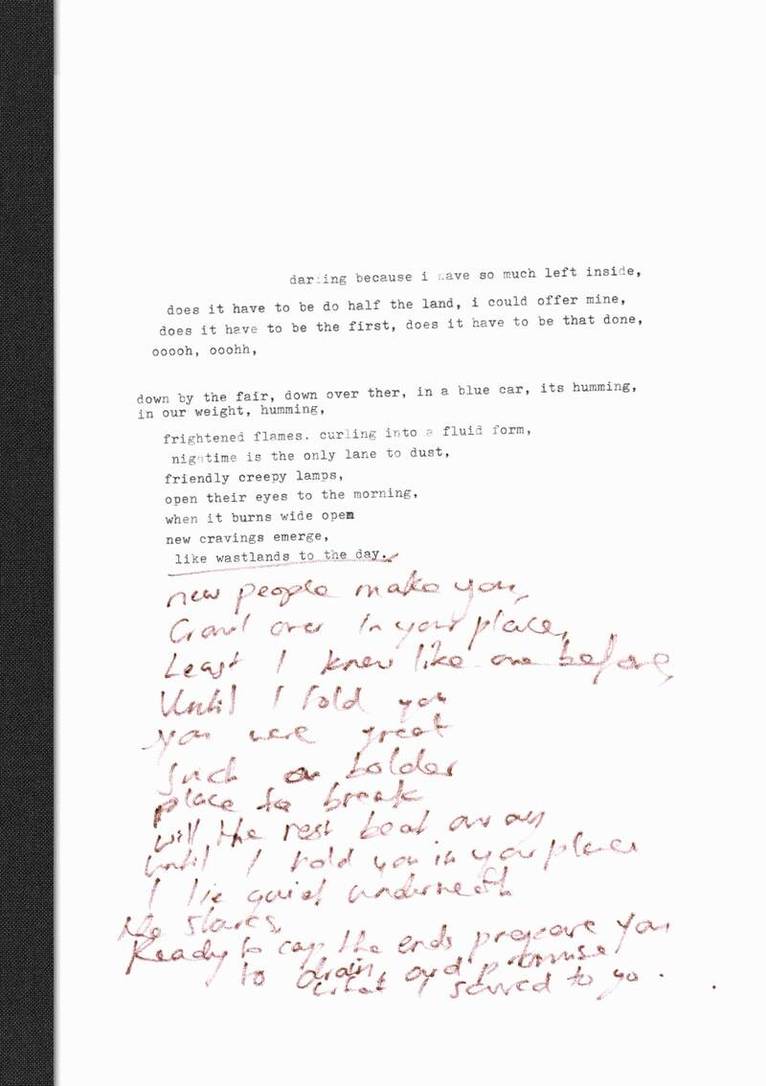 darling because i have so much left inside,
does it have to be do half the land, i could offer mine,
does it have to be the first, does it have to be that done,
ooooh, ooohh,
down by the fair, down over ther, in a blue car, its humming,
in our weight, humming,
frightened flames. curling into a fluid form,
nightime is the only lane to dust,
friendly creepy lamps,
open their eyes to the morning,
when it burns wide open
new cravings emerge,
like wastlands to the day.
new people make you,
Crawl over in your place,
Least I knew like one before,
Until I told you
you were great
Such a bolder
place to break
will the rest beat away
until I told you in your place
I lie quiet underneath
the stares,
Ready to cap the ends prepare you
to drain and promise
what I saved to yo .